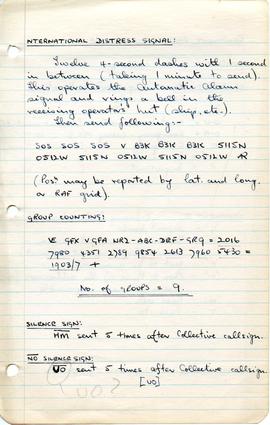 INTERNATIONAL DISTRESS SIGNAL:
Twelve 4-second dashes with 1 second
in between (taking 1 minute to send).
This operates the Automatic Alarm
signal and rings a bell in the
receiving operator's hut (ship, etc.).
Then send following:-
SOS SOS SOS V B3K B3K B3K 5115N
0512W 5115N 0512W 5115N 0512W AR
(Posn may be reported by lat. and long.
or RAF grid).
GROUP COUNTING:
VE GFX V GPA NR2-ABC-DEF-GR9 = 2016
7980 4351 2789 9854 2613 7960 5430 =
1903/7 +
No. of GROUPS = 9.
SILENCE SIGN:
HM sent 5 times after Collective callsign.
NO SILENCE SIGN:
UO sent 5 times after Collective callsign.
[UO]
UO?